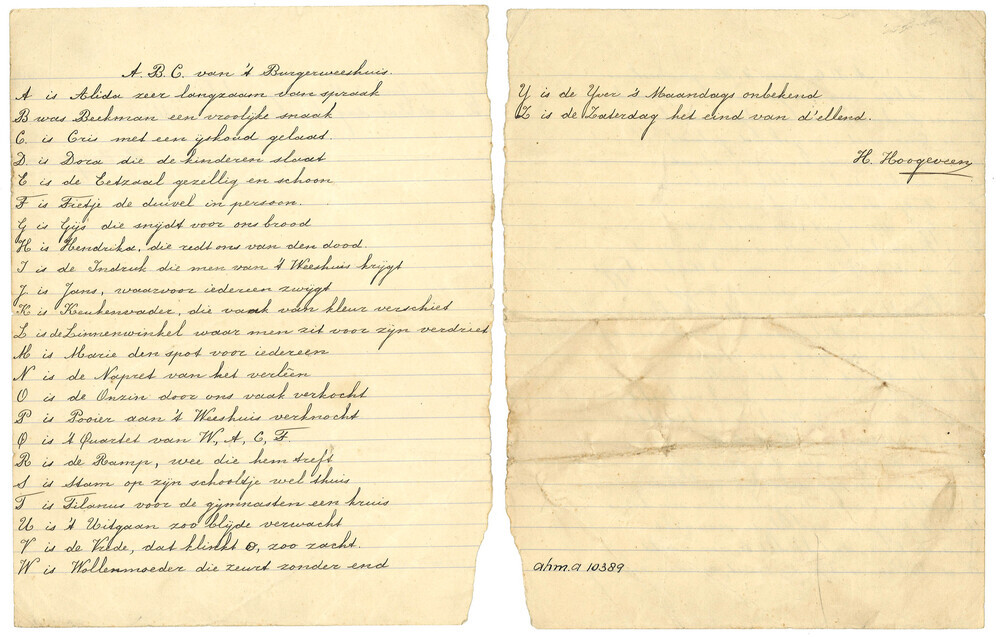 A. B. C. van 't Burgerweeshuis.
A is Alida zeer langzaam van spraak
B was Beekman een vroolijke snaak
C. is Cris met een ijskoud gelaat.
D is Dora die de kinderen slaat
E is de Eetzaal gezellig en schoon
F is Fietje de duivel in persoon.
G is Gijs die snijdt voor ons brood
H is Hendrika, die redt ons van den dood.
I is de Indruk die men van 't Weeshuis krijgt
J is Jans, waarvoor iedereen zwijgt
K is Keukenvader, die vaak van kleur verschiet
L is de Linnenwinkel waar men zit voor zijn verdriet
M is Marie den spot voor iedereen
N is de Napret van het verleen
O is de Onzin door ons vaak verkocht
P is Pooier aan 't Weeshuis verknocht
Q is 't Quartet van W, A, C, F.
R is de Ramp, wee die hem treft
S is Stam op zijn schooltje wel thuis
T is Tilanus voor de gymnasten een kruis
U is 't Uitgaan zoo blijde verwacht
V is de Vrede, dat klinkt o, zoo zacht.
W is Wollenmoeder die zeurt zonder end
Y is de Yver 's Maandags onbekend
Z is de Zaterdag het eind van d'ellend.
H. Hoogeveen
ahm.a 10389